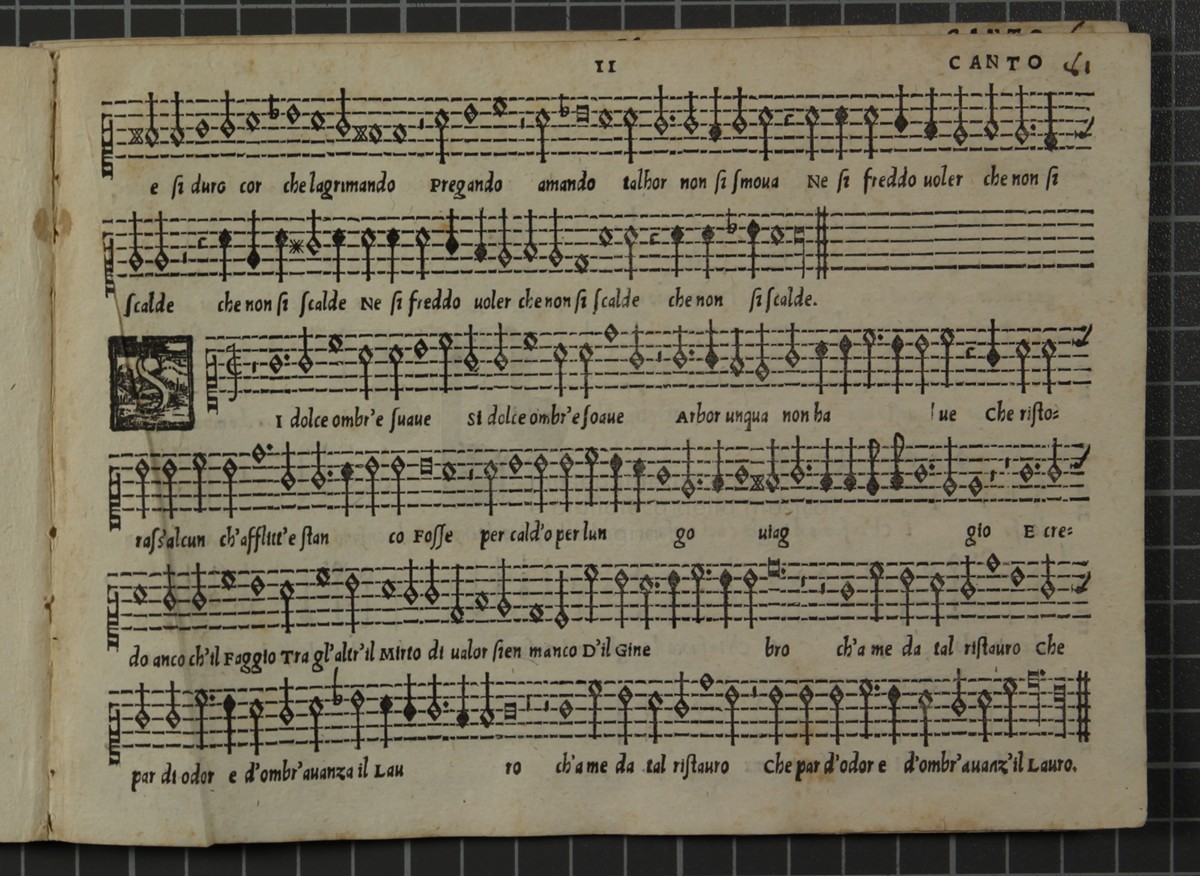 11 CANTO
e si duro cor che lagrimando Pregando amando talhor non si smoua Ne si freddo uoler che non si
scalde che non si scalde Ne si freddo uoler che non si scalde che non si scalde.
S
I dolce ombr'e suaue Si dolce ombr'e soaue Arbor unqua non ha ue Che risto=
rass'alcun ch'afflitt'e stan co Fosse per cald'o per lun go uiag gio E cre=
do anco ch'il Faggio Tra gl'altr'il Mirto di ualor sien manco D'il Gine bro ch'a me da tal ristauro Che
par di odor e d'ombr'auanza il Lau ro ch'a me da tal ristauro Che par d'odor e d'ombr'auanz'il Lauro.